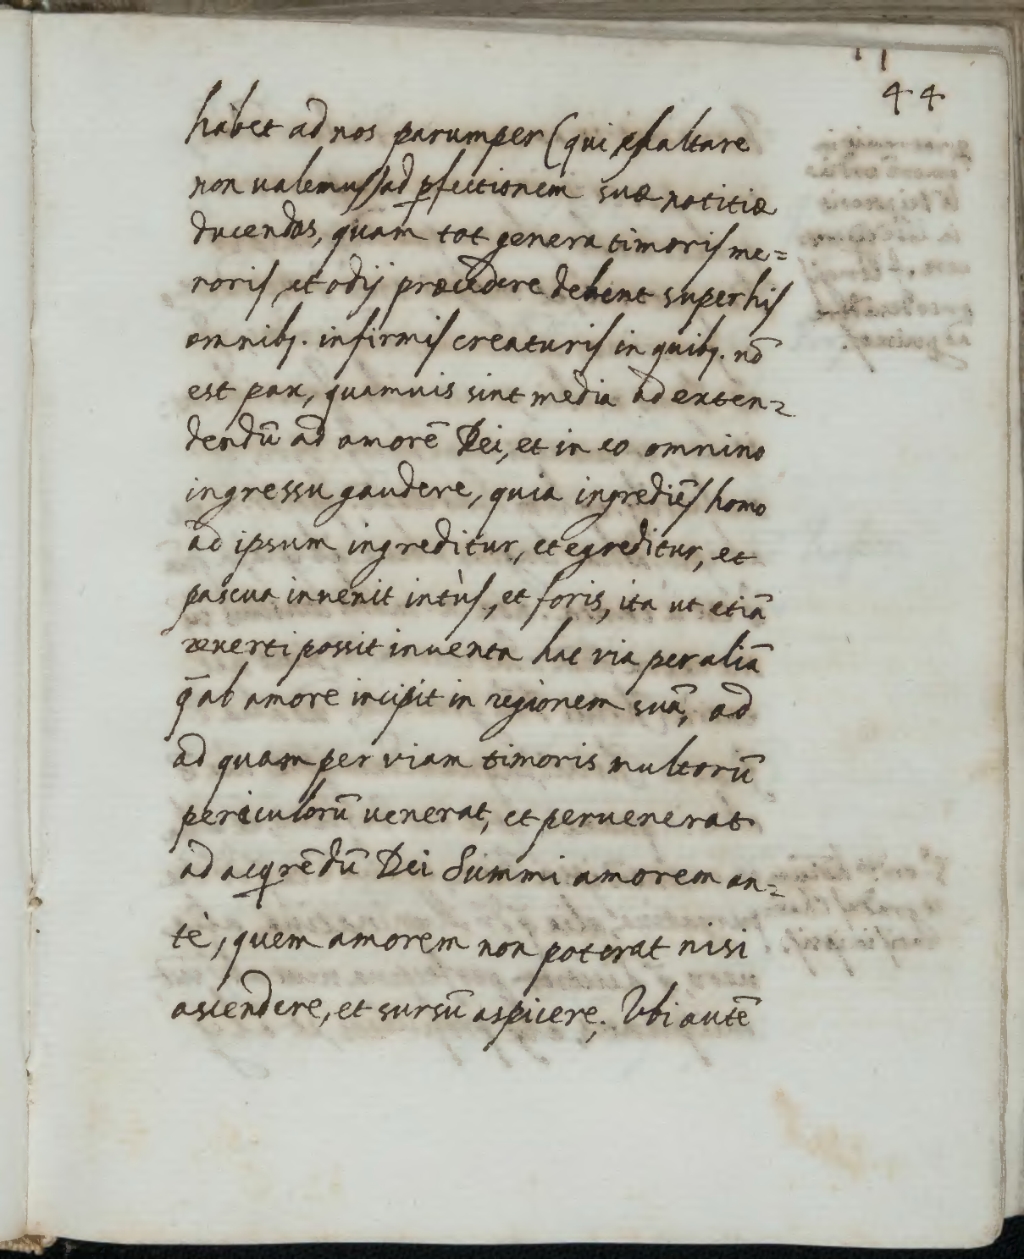 44
habet ad nos parumper (qui psaltare
non ualemus) ad pfectionem suæ notitiæ
ducendos, quam tot genera timoris me=
roris, et odij præcedere debent super his
omnibq. infirmis creaturis in quibq. nō
est pax, quamuis sint media ad exten=
dendū ad amorē Dei, et in eo omnino
ingressu gaudere, quia ingrediēs homo
ad ipsum ingreditur, et egreditur, et
pascua inuenit intùs, et foris, ita ut etiā
reuerti possit inuenta hac via per aliā
q̄ ab amore incipit in regionem suā, ad
ad quam per viam timoris multorū
periculorū uenerat, et peruenerat
ad acqrēdū Dei Summi amorem an=
tè, quem amorem non poterat nisi
ascendere, et sursū aspicere. Vbi autē